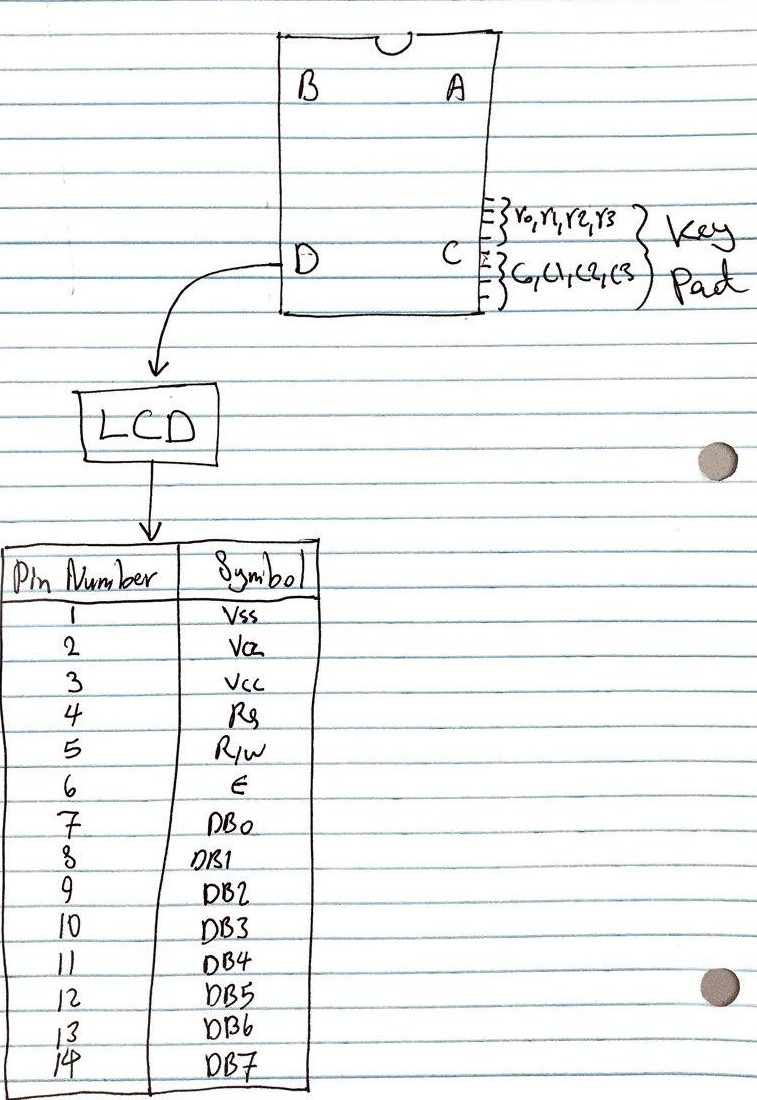 B A
r0,r1,r2,r3
Key
D C
C0,C1,C2,C3
Pad
LCD
Pin Number Symbol
1 Vss
2 Vcc
3 Vcc
4 Rs
5 R/W
6 E
7 DB0
8 DB1
9 DB2
10 DB3
11 DB4
12 DB5
13 DB6
14 DB7